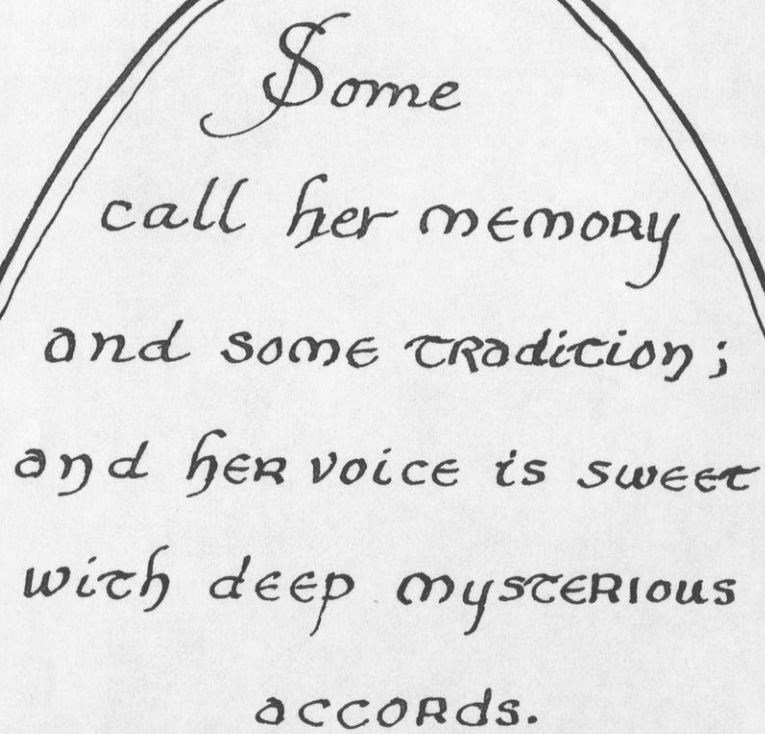 Some
call her memory
and some tradition;
and her voice is sweet
with deep mysterious
accords.